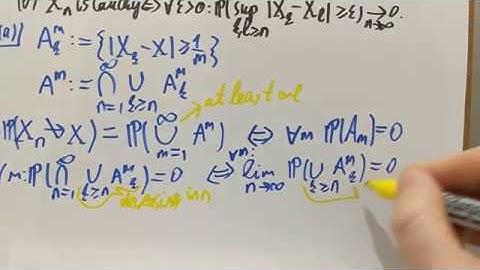 (b) X_n is Cauchy ⇔ ∀ε>0: ℙ(sup_{k,l≥n} |X_k - X_l| ≥ ε) →_{n→∞} 0.
(a) A_k^m := {|X_k - X| ≥ 1/m}
A^m := ⋂_{n=1}^∞ ⋃_{k≥n} A_k^m
at least one
ℙ(X_n ↛ X) = ℙ(⋃_{m=1}^∞ A^m) ⇔ ∀m ℙ(A_m) = 0
∀m: ℙ(⋂_{n=1}^∞ ⋃_{k≥n} A_k^m) = 0 ⇔ ∀m: lim_{n→∞} ℙ(⋃_{k≥n} A_k^m) = 0
in n